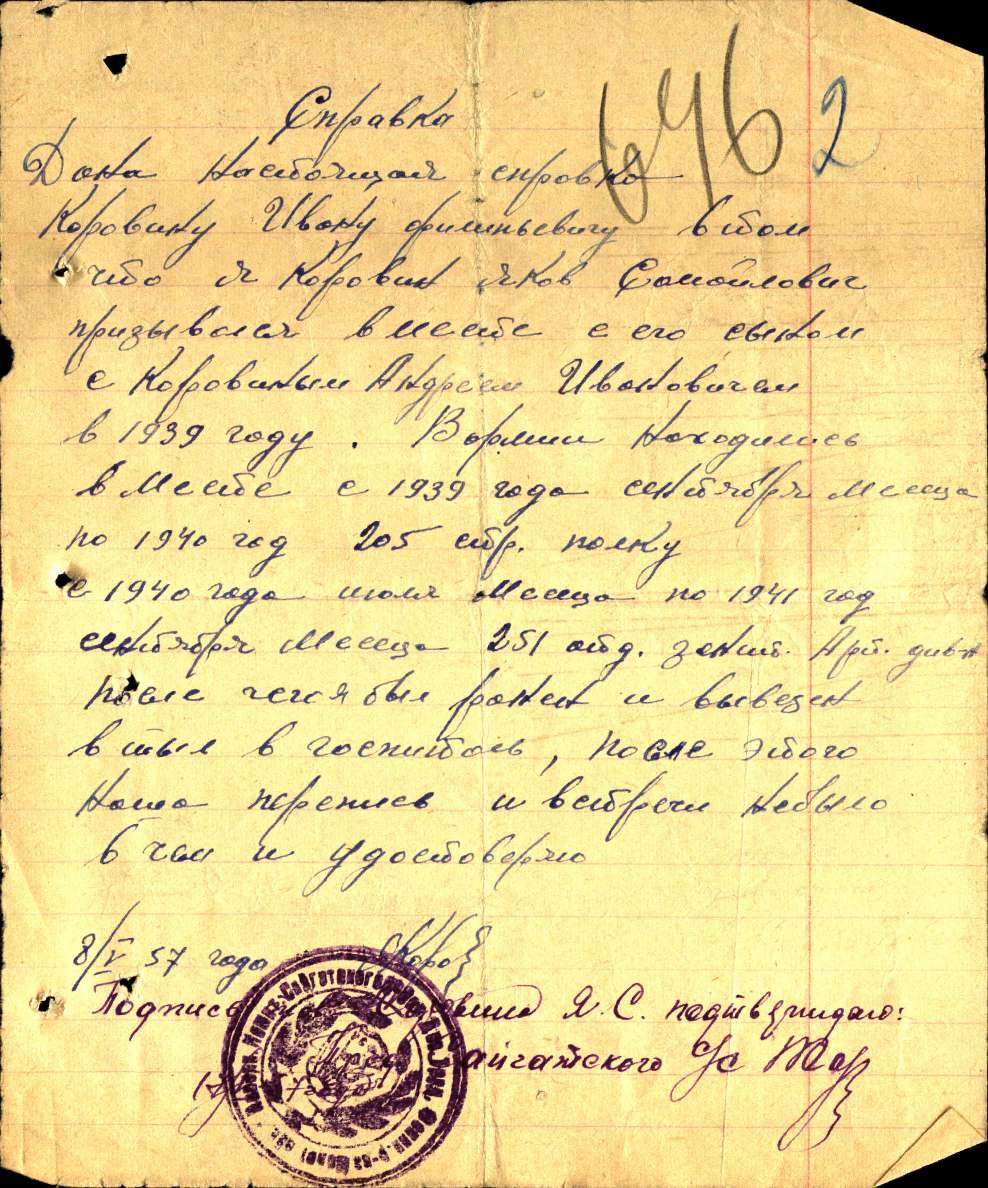 646 2
Справка
Дана настоящая справка
Коровину Ивану филиньевичу втом
что я Коровин яков Самойлович
призывался вместе с его сыном
с Коровиным Андреем Ивановичем
в 1939 году. Вармии находились
в Месте с 1939 года сентября Месеца
по 1940 год 205 стр. полку
с 1940 года июля Месеца по 1941 год
сентября Месеца 251 отд. зенит. Арт. див-н
после чего я был ранен и вывезен
в тыл в госпиталь, после этого
наша перепись и встречи небыло
в чем и удостоверяю
8/V 57 года Коро
Подпись Я. С. подтверждаю:
айгатского с/с